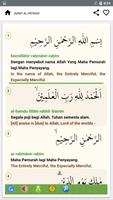 SURAT AL-FATIHAH
بِسْمِ اللَّهِ الرَّحْمَٰنِ الرَّحِيمِ
bismillāhir-raḥmānir-raḥīm
Dengan menyebut nama Allah Yang Maha Pemurah
lagi Maha Penyayang.
In the name of Allah, the Entirely Merciful, the
Especially Merciful.
الْحَمْدُ لِلَّهِ رَبِّ الْعَالَمِينَ
al-ḥamdu lillāhi rabbil-'ālamīn
Segala puji bagi Allah, Tuhan semesta alam.
[All] praise is [due] to Allah, Lord of the worlds -
الرَّحْمَٰنِ الرَّحِيمِ
ar-raḥmānir-raḥīm
Maha Pemurah lagi Maha Penyayang.
The Entirely Merciful, the Especially Merciful,